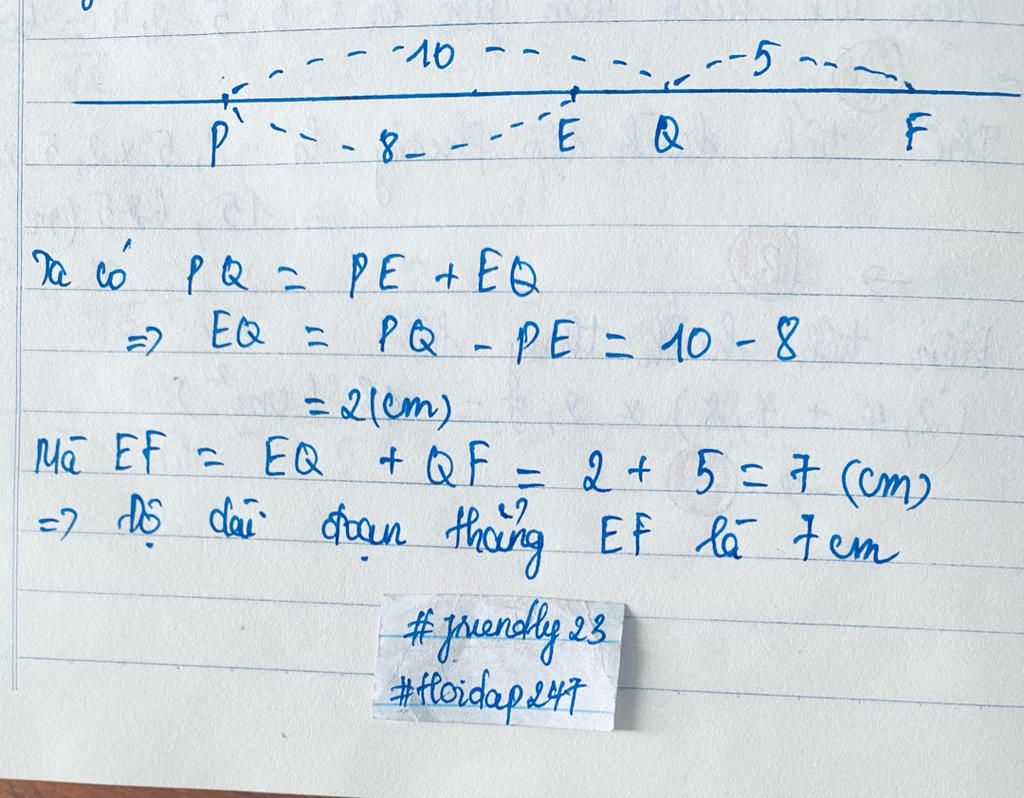 10 5
P 8 E Q F
Ta có PQ = PE + EQ
=> EQ = PQ - PE = 10 - 8
= 2 (cm)
Mà EF = EQ + QF = 2 + 5 = 7 (cm)
=> Độ dài đoạn thẳng EF là 7 cm
#friendly23
#Hoidap247